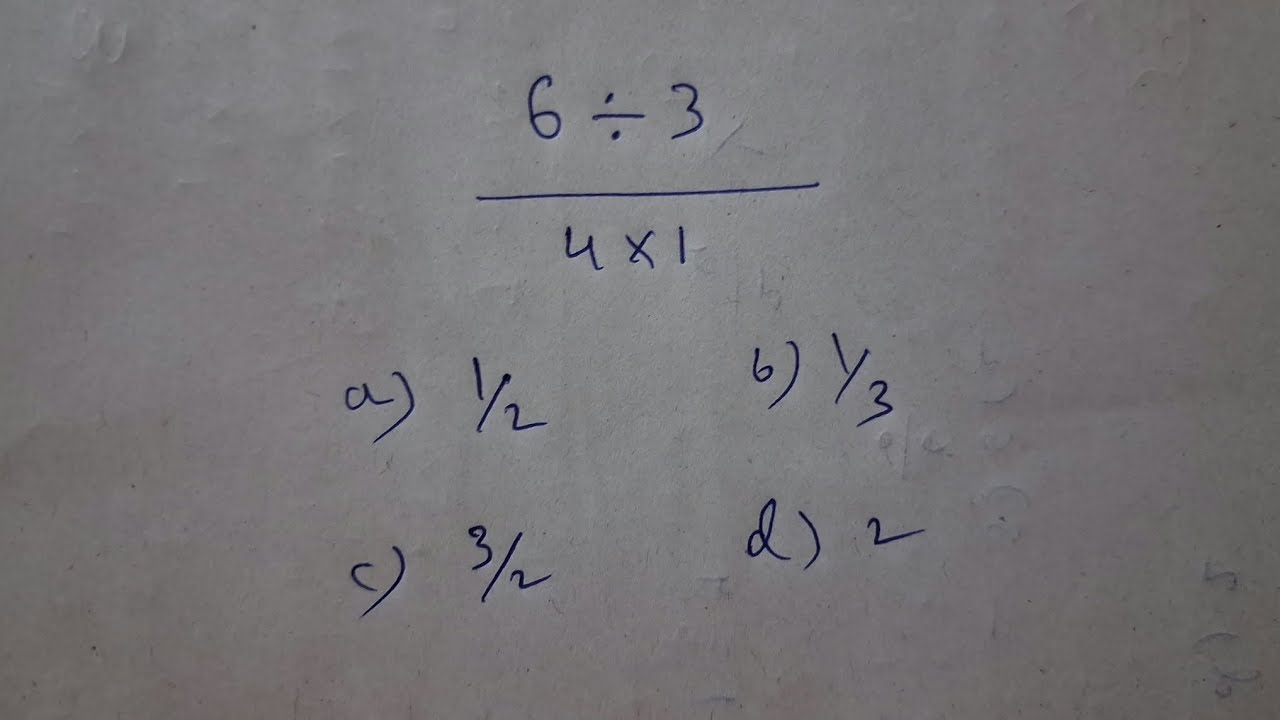 6 ÷ 3
4 × 1
a) 1/2 b) 1/3
c) 3/2 d) 2